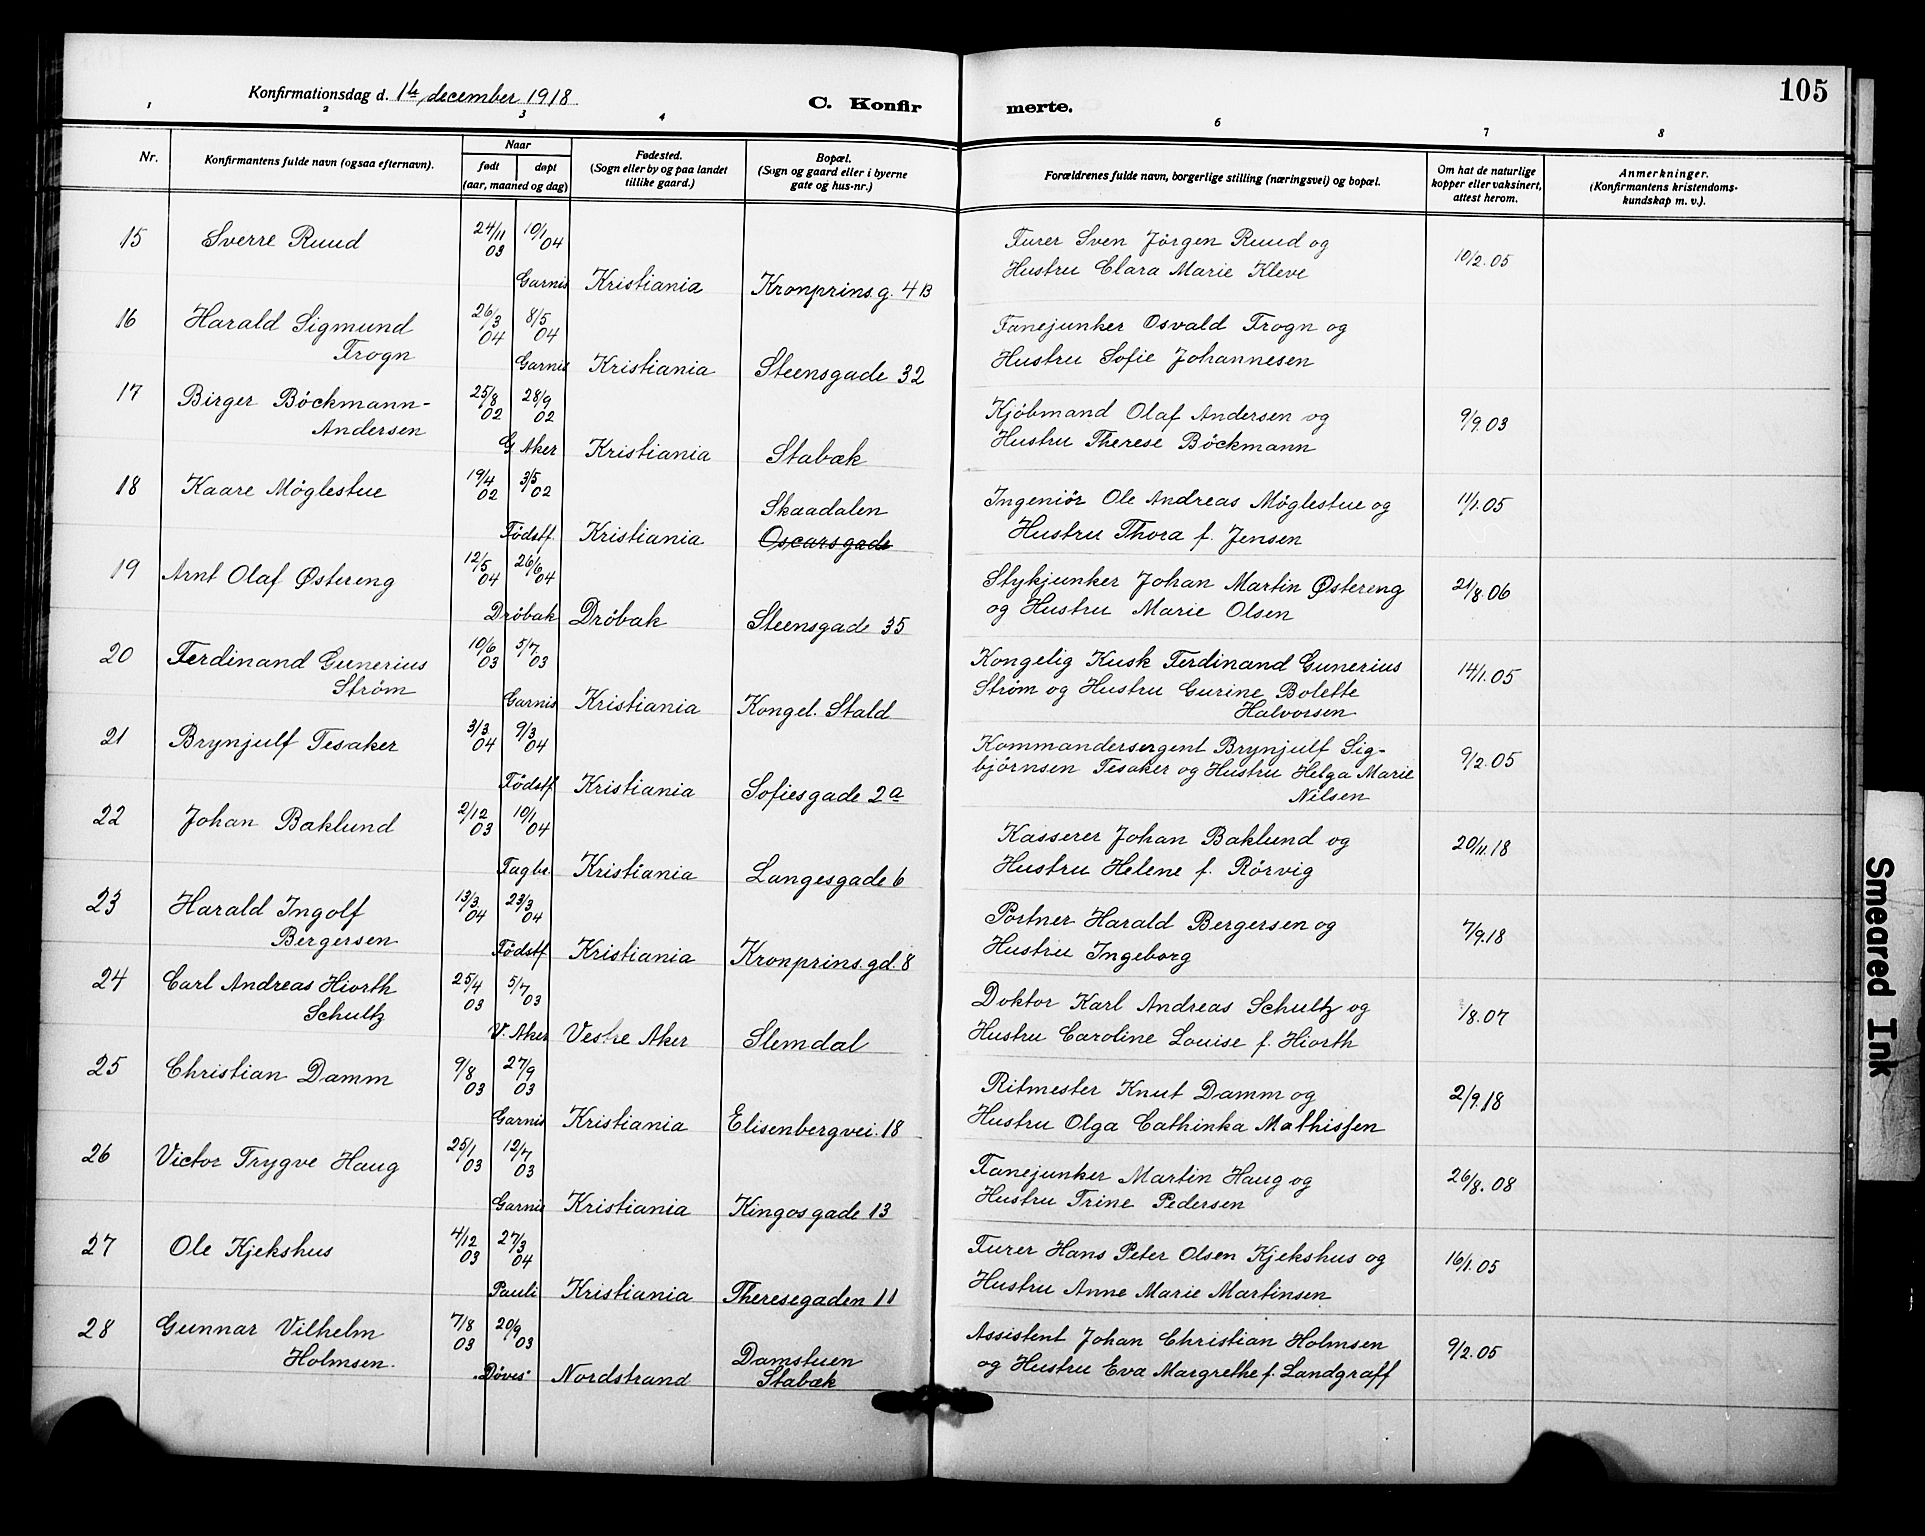 105
Konfirmationsdag d. 1ste december 1918
C. Konfirmerte.
1 2 3 4 6 7 8
Nr.
Konfirmantens fulde navn (ogsaa efternavn).
Naar
født døpt
(aar, maaned og dag)
Fødested.
(Sogn eller by og paa landet
tillike gaard.)
Bopæl.
(Sogn og gaard eller i byerne
gate og hus-nr.)
Forældrenes fulde navn, borgerlige stilling (næringsvei) og bopæl.
Om hat de naturlige
kopper eller vaksinert,
attest herom.
Anmerkninger.
(Konfirmantens kristendoms-
kundskap m. v.).
15 Sverre Ruud 24/11 03 10/1 04 Furer Sven Jörgen Ruud og 10/2.05
Garnis Kristiania Kronprins.g. 4B Hustru Clara Marie Kleve
16 Harald Sigmund 26/3 04 8/5 04 Fanejunker Osvald Trogn og
Trogn Garnis Kristiania Steensgade 32 Hustru Sofie Johannesen
17 Birger Böckmann- 25/8 02 28/9 02 Kjöbmand Olaf Andersen og 9/9.03
Andersen G. Aker Kristiania Stabæk Hustru Therese Böckmann
18 Kaare Möglestue 19/4 02 3/5 02 Skaadalen Ingeniör Ole Andreas Möglestue og 11/1.05
Födstf. Kristiania Oscarsgade Hustru Thora f. Jensen
19 Arnt Olaf Østereng 12/5 04 26/6 04 Stykjunker Johan Martin Østereng 21/8.06
Dröbak Dröbak Steensgade 35 og Hustru Marie Olsen
20 Ferdinand Gunerius 10/6 03 5/7 03 Kongelig Kusk Ferdinand Gunerius 14/1.05
Ström Garnis Kristiania Kongel. Stald Ström og Hustru Gurine Bolette
Halvorsen
21 Brynjulf Tesaker 3/3 04 9/3 04 Kommandersergent Brynjulf Sig- 9/2.05
Födstf Kristiania Sofiesgade 2a björnsen Tesaker og Hustru Helga Marie
Nilsen
22 Johan Baklund 2/12 03 10/1 04 Kasserer Johan Baklund og 20/11.18
Fagb. Kristiania Langesgade 6 Hustru Helene f. Rörvig
23 Harald Ingolf 13/3 04 23/3 04 Portner Harald Bergersen og 7/9.18
Bergersen Födstf Kristiania Kronprins.gd. 8 Hustru Ingeborg
24 Carl Andreas Hiorth 25/4 03 5/7 03 Doktor Karl Andreas Schultz og /8.07
Schultz V. Aker Vestre Aker Slemdal Hustru Caroline Louise f. Hiorth
25 Christian Damm 9/8 03 27/9 03 Ritmester Knut Damm og 2/9.18
Garnis Kristiania Elisenbergvei. 18 Hustru Olga Cathinka Mathissen
26 Victor Trygve Haug 25/1 03 12/7 03 Fanejunker Martin Haug og 26/8.08
Garnis Kristiania Kingosgade 13 Hustru Trine Pedersen
27 Ole Kjekshus 4/12 03 27/3 04 Furer Hans Peter Olsen Kjekshus og 16/1.05
Pauli Kristiania Theresegaden 11 Hustru Anne Marie Martinsen
28 Gunnar Vilhelm 7/8 03 20/9 03 Damstuen Assistent Johan Christian Holmsen 9/2.05
Holmsen. "Döves" Nordstrand Stabæk og Hustru Eva Margrethe f. Landgraff
Smeared Ink